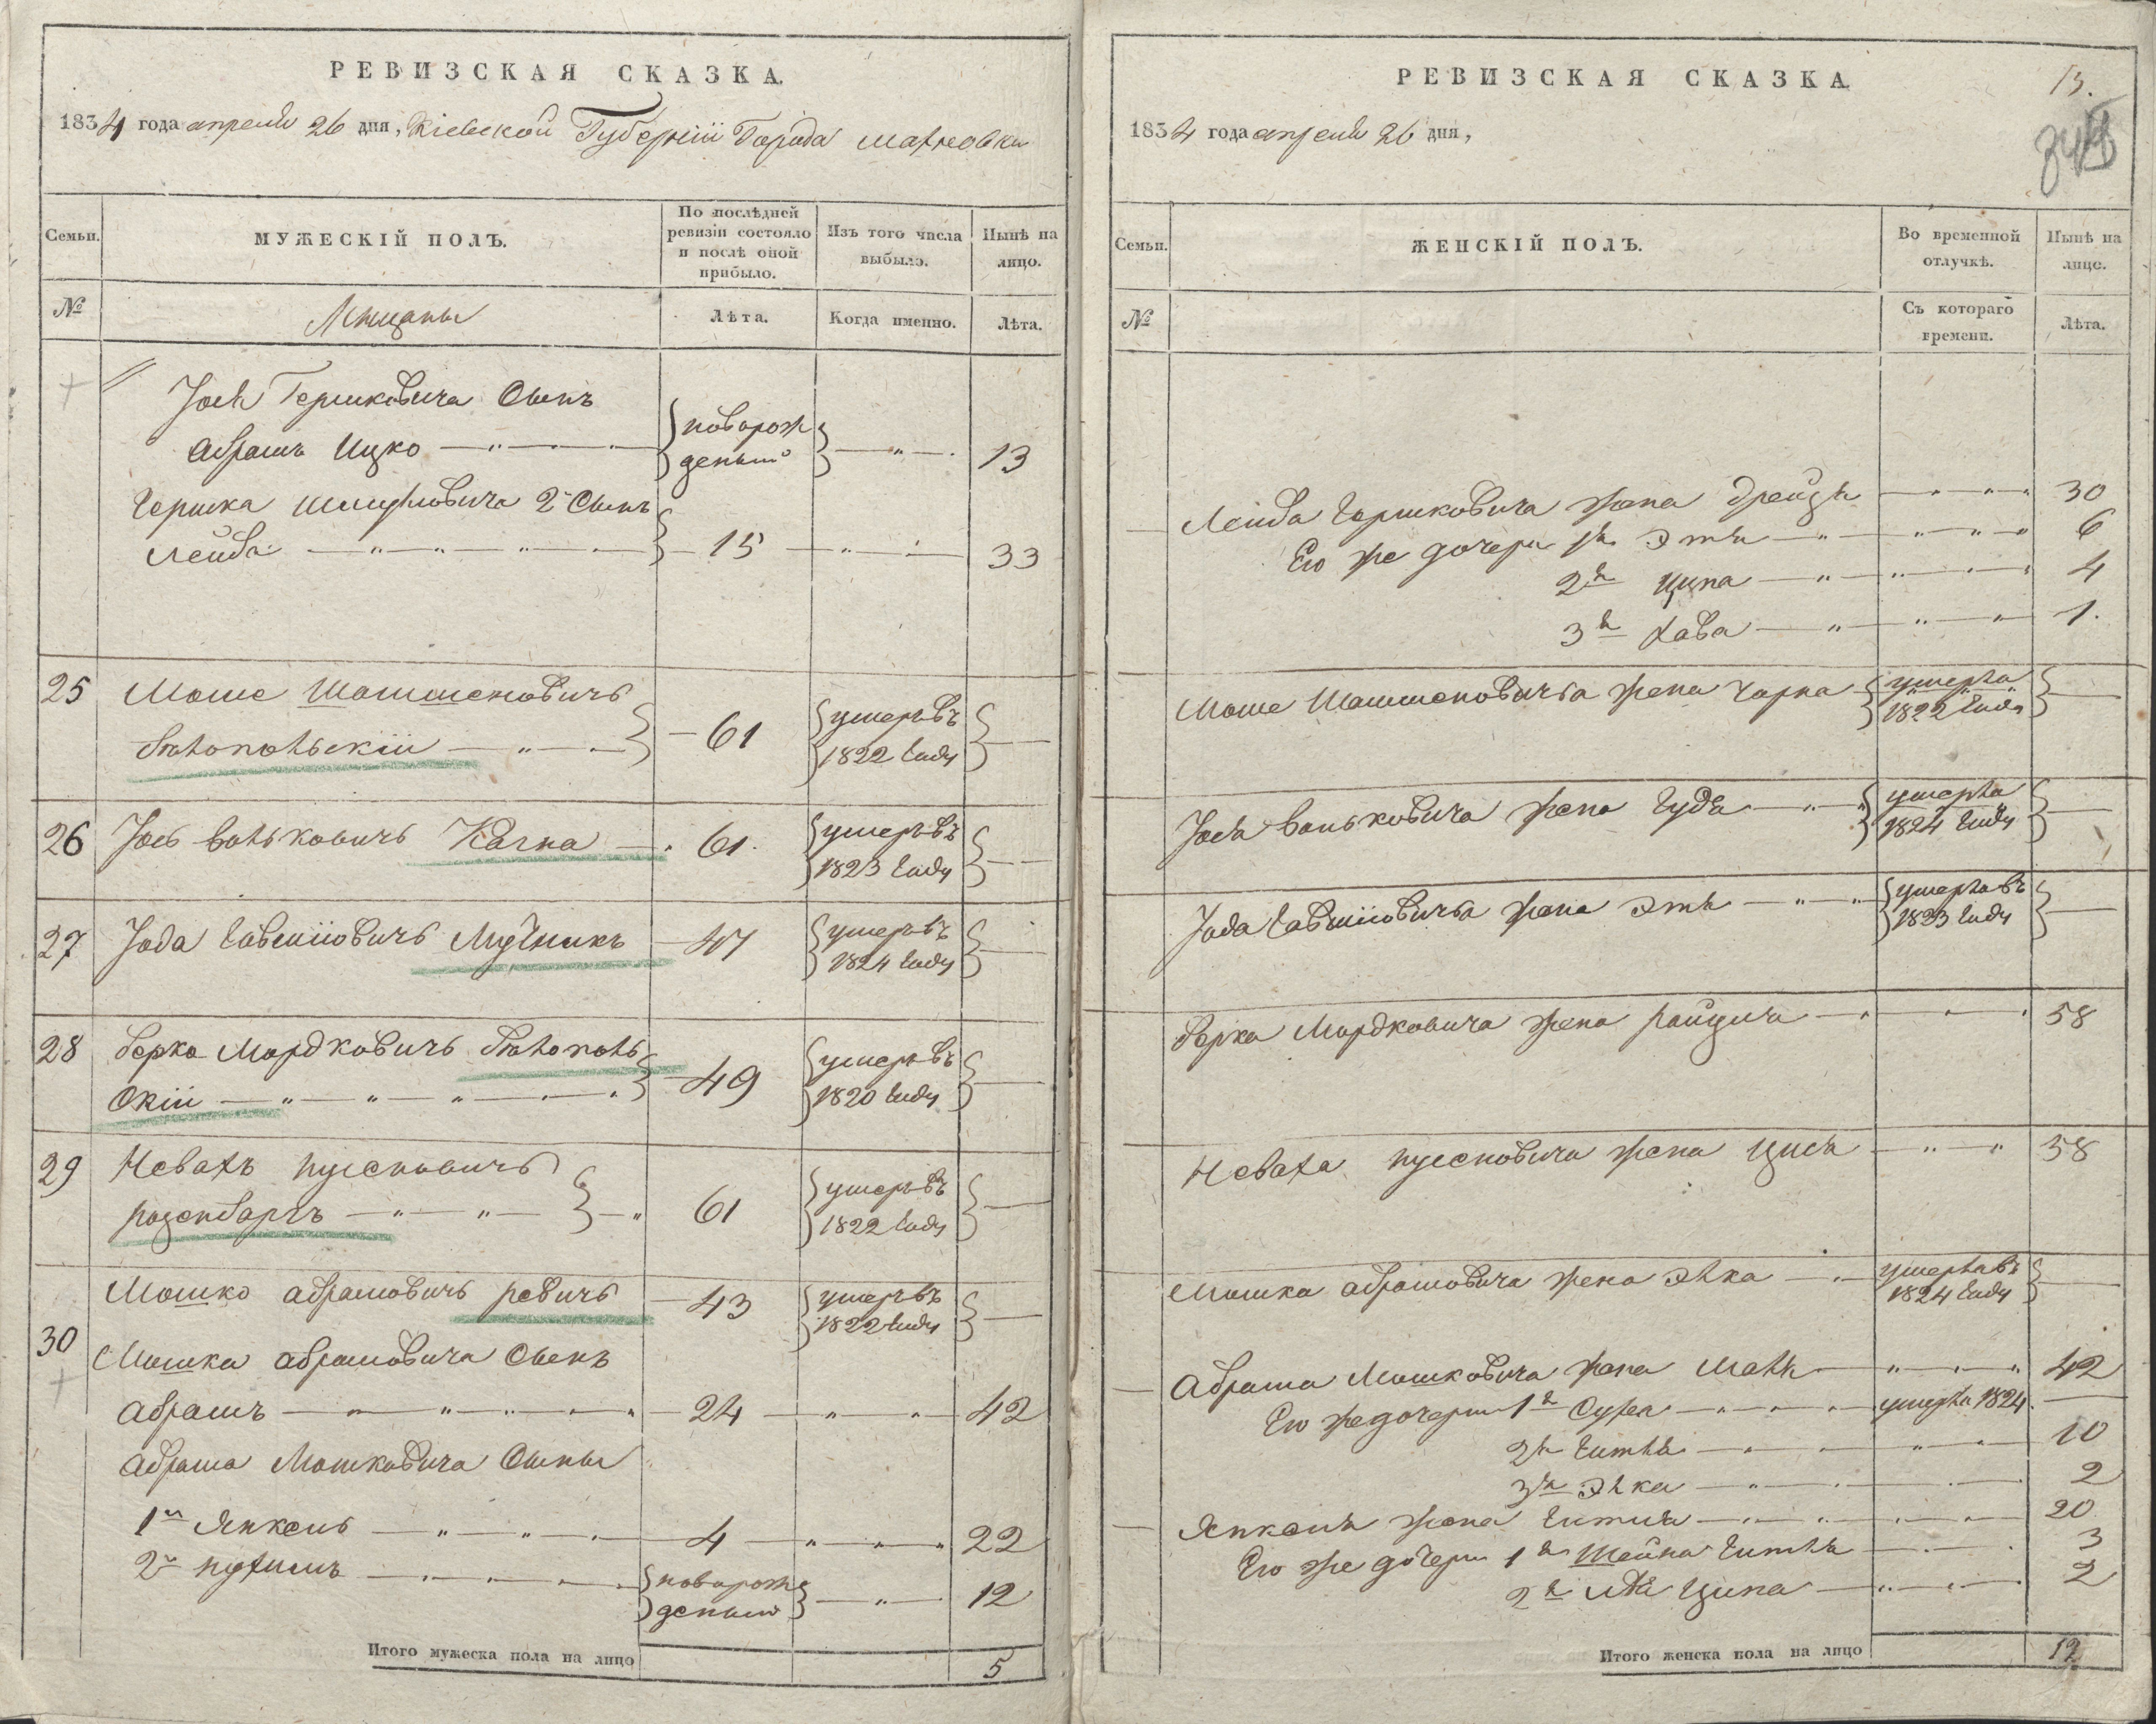 РЕВИЗСКАЯ СКАЗКА.
1834 года апреля 26 дня, Кіевской Губерніи Города Махновки
Семьи.
МУЖЕСКІЙ ПОЛЪ.
По послѣдней ревизіи состояло и послѣ оной прибыло.
Изъ того числа выбыло.
Нынѣ на лицо.
№
Мещаны
Лѣта.
Когда именно.
Лѣта.
Гершковича Сынъ
Абрамъ Ицко
новорож
деный
13
Гершка 2й Сынъ
Лейба
15
33
25
Моше
Бялопольскій
61
умеръ въ
1822 году
26
Іось Волькович Кагна
61
умеръ въ
1823 году
27
Мучникъ
47
умеръ въ
1824 году
28
Берко Мордковичъ Бялополь
скій
49
умеръ въ
1820 году
29
Невахъ
розенбаргъ
61
умеръ въ
1822 году
30
Мошко абрамовичь ревичь
43
умеръ въ
1822 году
Мошка абрамовича Сынъ
абрамъ
24
42
абрама Мошковича Сыны
1й Янкель
4
22
2й нухимъ
новорож
деный
12
Итого мужеска пола на лицо
5
РЕВИЗСКАЯ СКАЗКА
13.
1834 года апреля 26 дня,
Семьи.
ЖЕНСКІЙ ПОЛЪ.
Во временной отлучкѣ.
Нынѣ на лице.
№
Съ котораго времени.
Лѣта.
Лейба Гершковича жена Дрейзя
30
Его же дочери 1я Этля
6
2я Ципа
4
3я Хава
1.
Моше жена Чарна
умерла
1822 году
жена Гудя
умерла
1824 году
жена
умерла въ
1823 году
Берка Мордковича жена
58
Неваха жена Цися
58
Мошка абрамовича жена Элка
умерла въ
1824 году
Абрама Мошковича жена Маля
42
Его же дочери 1я Сура
умерла 1824
2я Гитля
10
3я Элка
2
Янкеля жена
20
Его же дочери 1я Шейна Гитля
3
2я Ципа
2
Итого женска пола на лицо
12